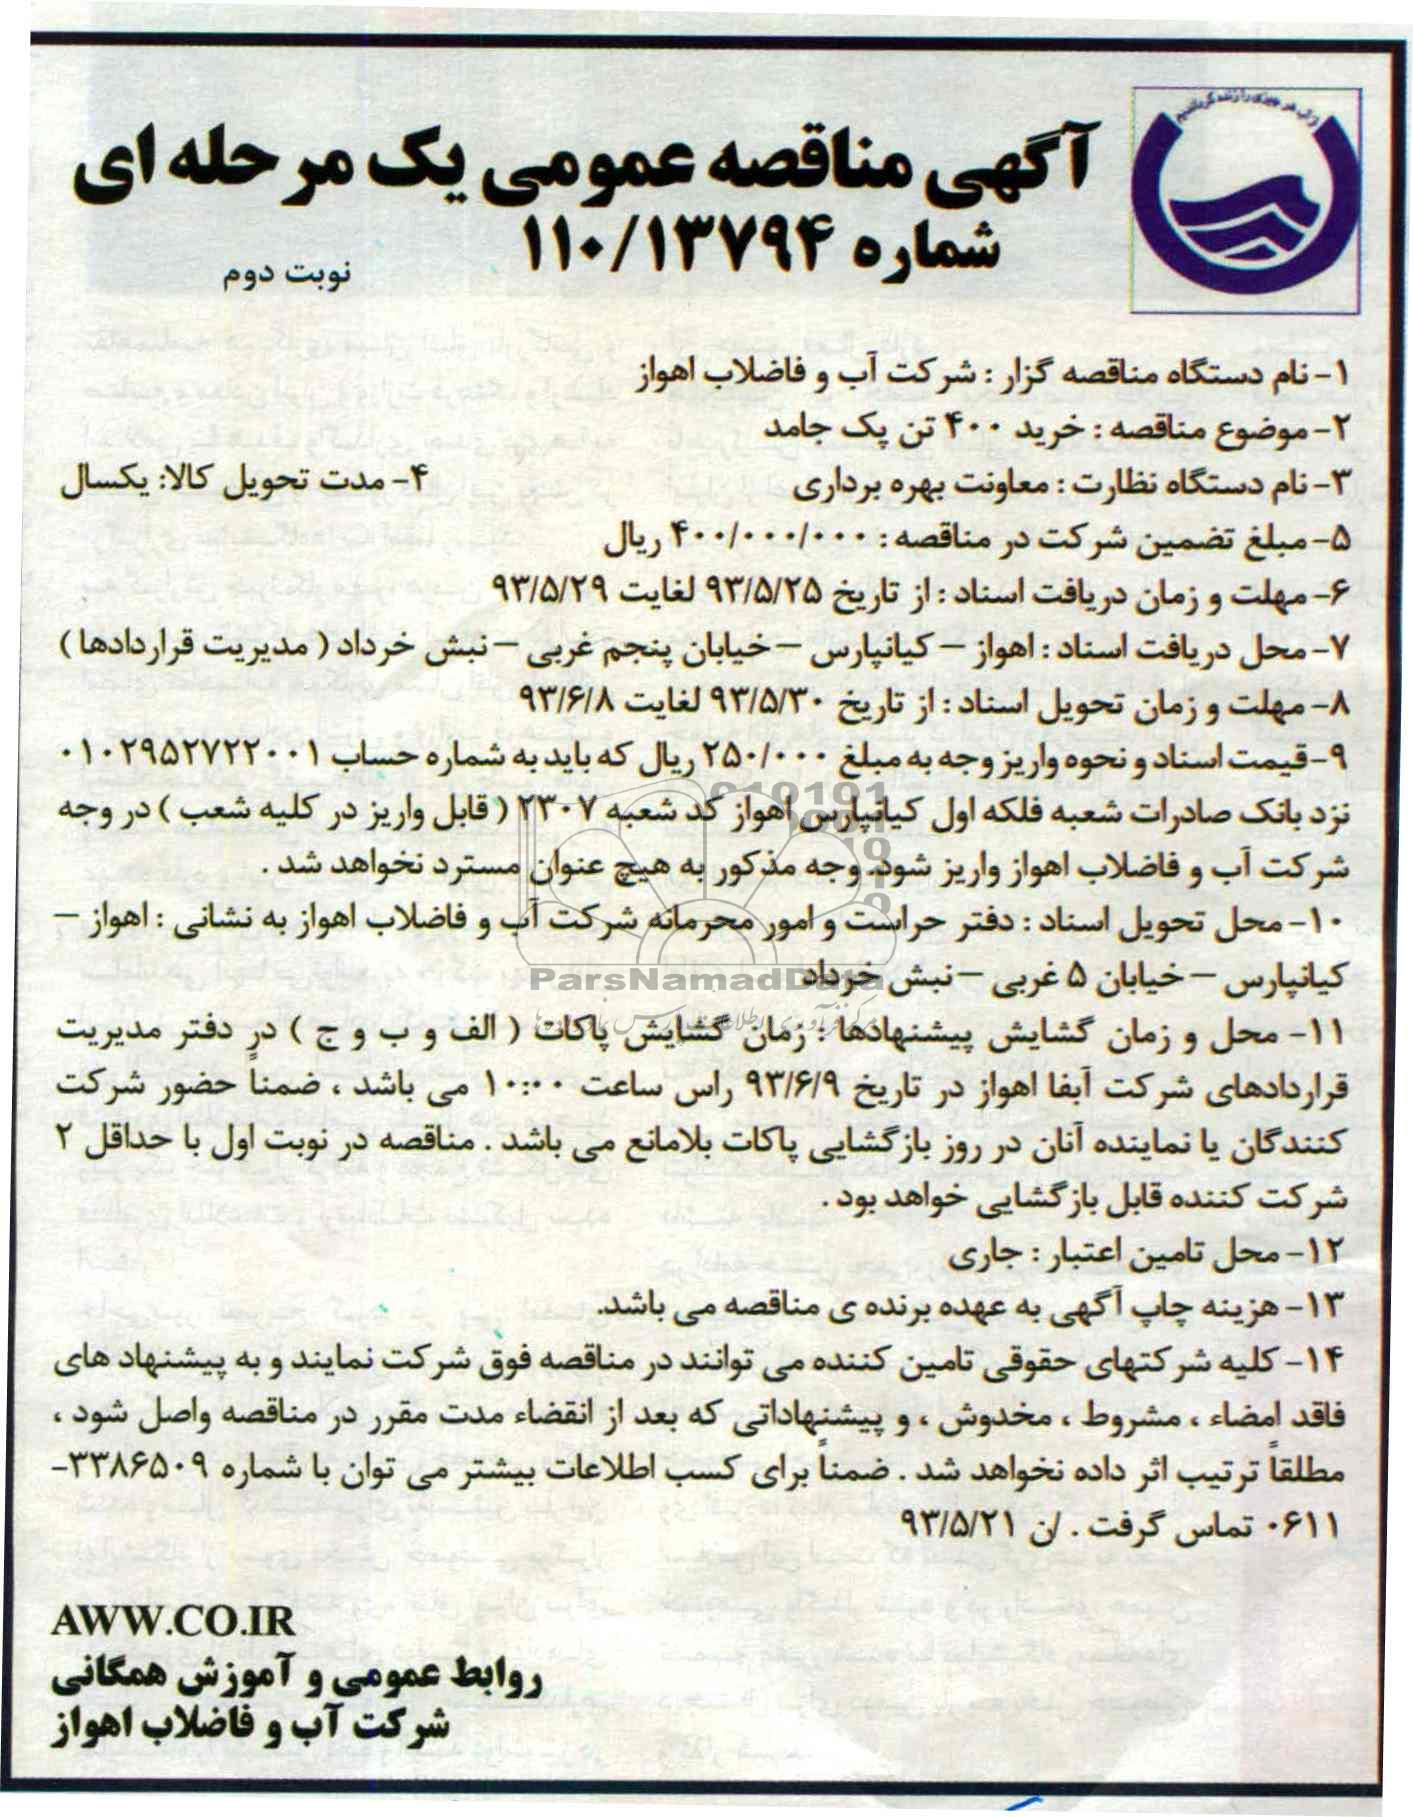 از آب هر چیزی را زنده گردانیدیم
آگهی مناقصه عمومی یک مرحله ای
شماره ۱۱۰/۱۳۷۹۴
نوبت دوم
۱- نام دستگاه مناقصه گزار : شرکت آب و فاضلاب اهواز
۲- موضوع مناقصه : خرید ۴۰۰ تن پک جامد
۳- نام دستگاه نظارت : معاونت بهره برداری ۴- مدت تحویل کالا: یکسال
۵- مبلغ تضمین شرکت در مناقصه : ۴۰۰/۰۰۰/۰۰۰ ریال
۶- مهلت و زمان دریافت اسناد : از تاریخ ۹۳/۵/۲۵ لغایت ۹۳/۵/۲۹
۷- محل دریافت اسناد : اهواز – کیانپارس – خیابان پنجم غربی – نبش خرداد ( مدیریت قراردادها )
۸- مهلت و زمان تحویل اسناد : از تاریخ ۹۳/۵/۳۰ لغایت ۹۳/۶/۸
۹- قیمت اسناد و نحوه واریز وجه به مبلغ ۲۵۰/۰۰۰ ریال که باید به شماره حساب ۰۱۰۲۹۵۲۷۲۲۰۰۱
نزد بانک صادرات شعبه فلکه اول کیانپارس اهواز کد شعبه ۲۳۰۷ ( قابل واریز در کلیه شعب ) در وجه
شرکت آب و فاضلاب اهواز واریز شود. وجه مذکور به هیچ عنوان مسترد نخواهد شد .
۱۰- محل تحویل اسناد : دفتر حراست و امور محرمانه شرکت آب و فاضلاب اهواز به نشانی : اهواز –
کیانپارس – خیابان ۵ غربی – نبش خرداد
ParsNamadData
۱۱- محل و زمان گشایش پیشنهادها : زمان گشایش پاکات ( الف و ب و ج ) در دفتر مدیریت
قراردادهای شرکت آبفا اهواز در تاریخ ۹۳/۶/۹ راس ساعت ۱۰:۰۰ می باشد ، ضمناً حضور شرکت
کنندگان یا نماینده آنان در روز بازگشایی پاکات بلامانع می باشد . مناقصه در نوبت اول با حداقل ۲
شرکت کننده قابل بازگشایی خواهد بود .
۱۲- محل تامین اعتبار : جاری
۱۳- هزینه چاپ آگهی به عهده برنده ی مناقصه می باشد.
۱۴- کلیه شرکتهای حقوقی تامین کننده می توانند در مناقصه فوق شرکت نمایند و به پیشنهاد های
فاقد امضاء ، مشروط ، مخدوش ، و پیشنهاداتی که بعد از انقضاء مدت مقرر در مناقصه واصل شود ،
مطلقاً ترتیب اثر داده نخواهد شد . ضمناً برای کسب اطلاعات بیشتر می توان با شماره ۳۳۸۶۵۰۹-
۰۶۱۱ تماس گرفت . /ن ۹۳/۵/۲۱
AWW.CO.IR
روابط عمومی و آموزش همگانی
شرکت آب و فاضلاب اهواز